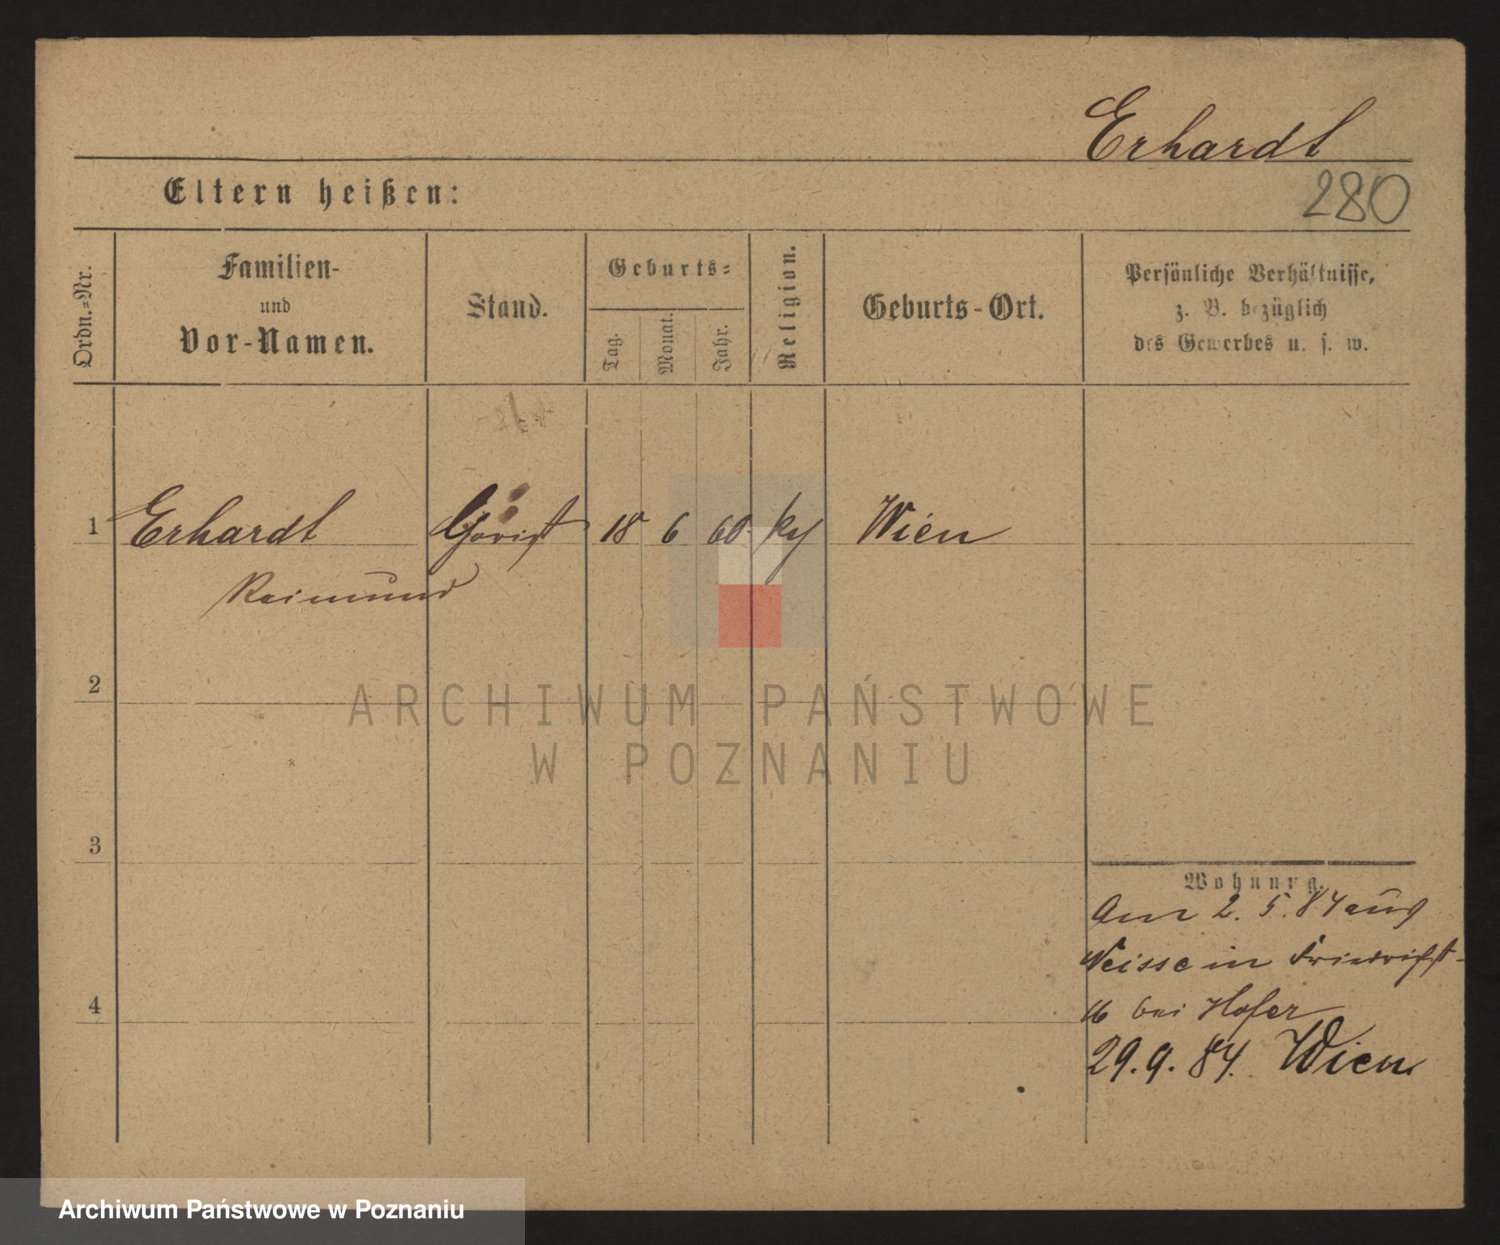 Erhardt
Eltern heißen:
280
Ordn.-Nr.
Familien-
und
Vor-Namen.
Stand.
Geburts-
Tag.
Monat.
Jahr.
Religion.
Geburts-Ort.
Persönliche Verhältnisse,
z. B. bezüglich
des Gewerbes u. s. w.
1 Erhardt 18 6 60 Wien
Reimund
2
3
4
Wohnung.
Am 2. 5. 84 aus
Neisse in Friedrichst-
16 bei Hofer
29. 9. 84. Wien
ARCHIWUM PAŃSTWOWE
W POZNANIU
Archiwum Państwowe w Poznaniu